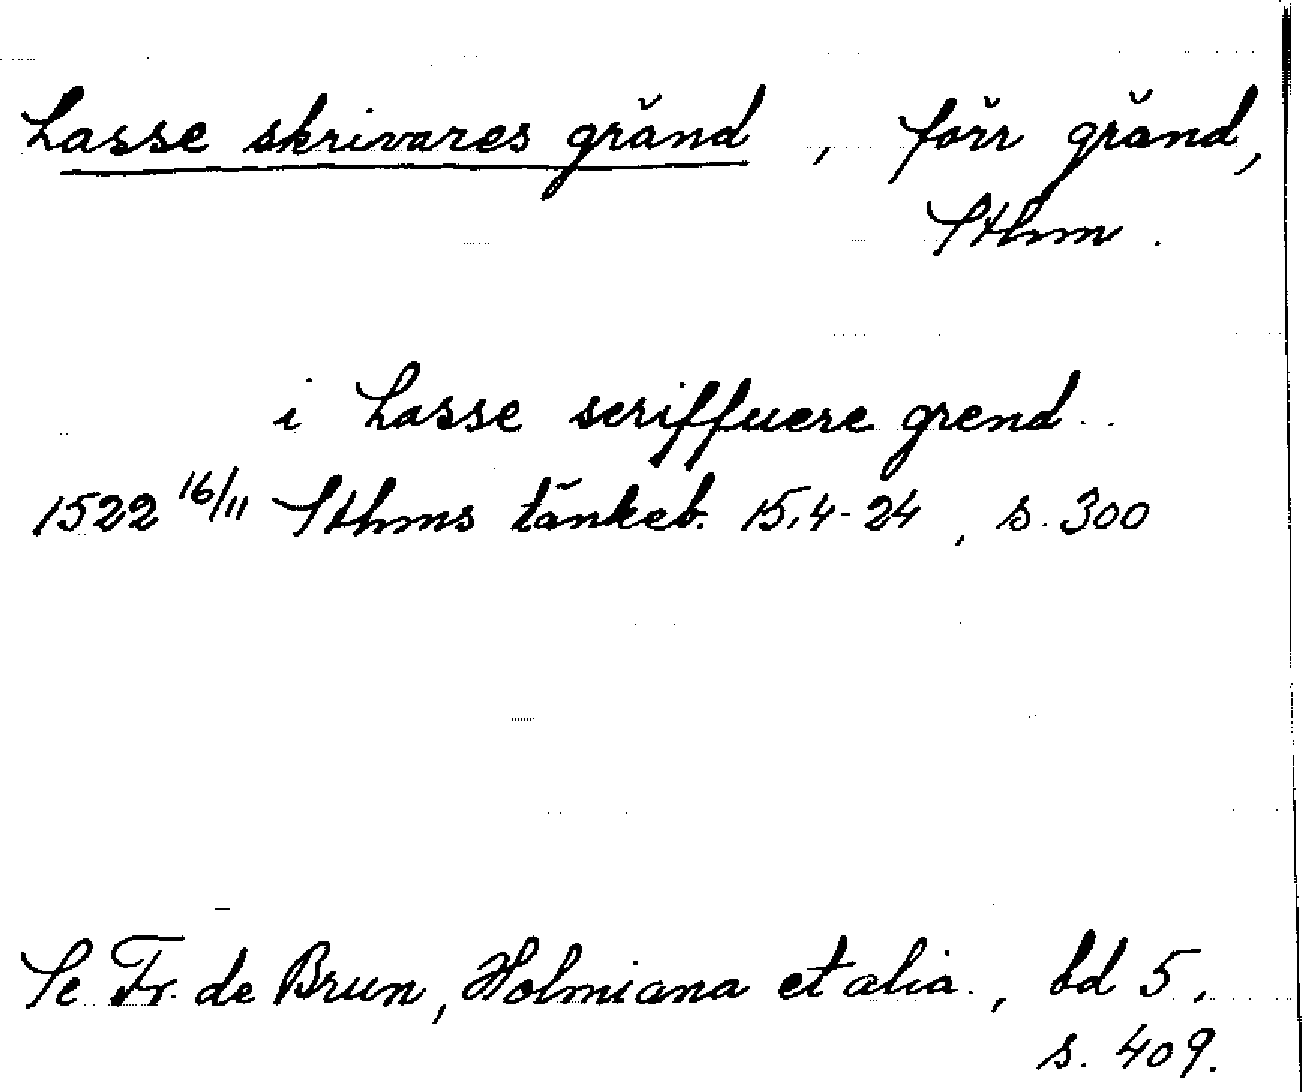 Lasse skrivares gränd, förr gränd,
Sthm.
i Lasse scriffuere grend
1522 16/11 Sthms tänkeb. 1514-24, s. 300
Se Fr. de Brun, Holmiana et alia, bd 5,
s. 409.